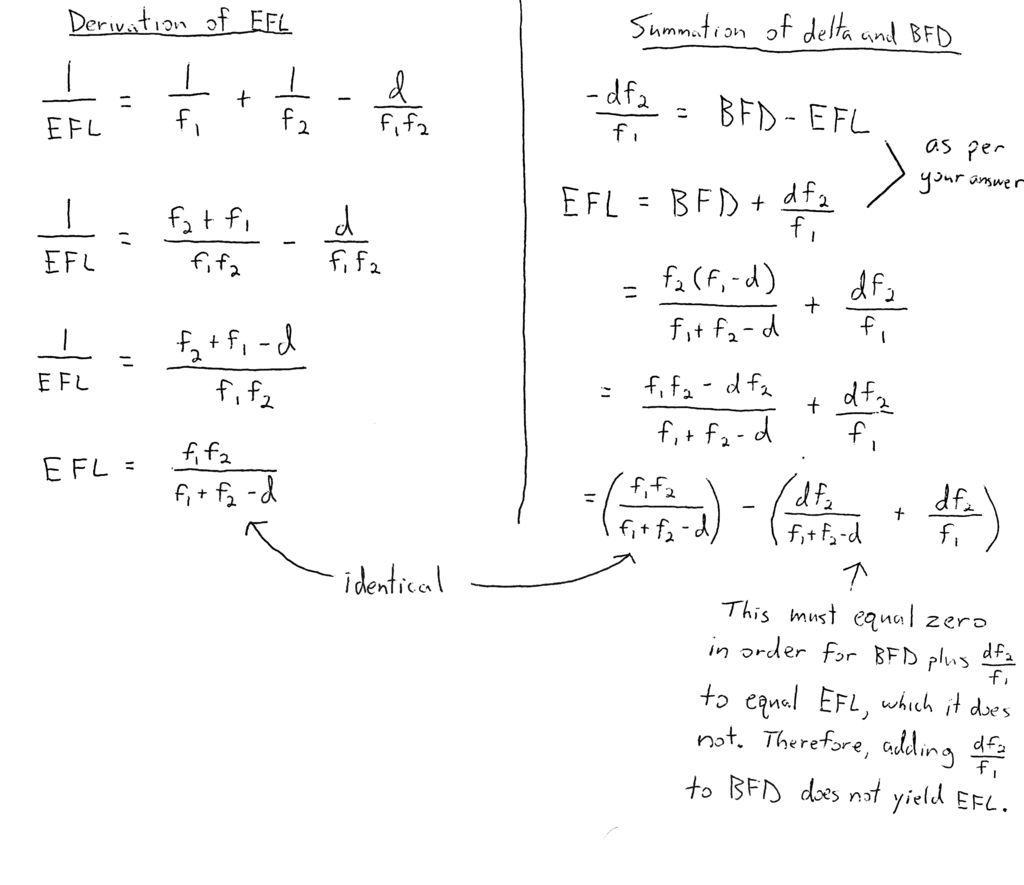 Derivation of EFL
1/EFL = 1/f₁ + 1/f₂ - d/f₁f₂
1/EFL = f₂ + f₁/f₁f₂ - d/f₁f₂
1/EFL = f₂ + f₁ - d/f₁f₂
EFL = f₁f₂/f₁ + f₂ - d
identical
Summation of delta and BFD
-df₂/f₁ = BFD - EFL
EFL = BFD + df₂/f₁
as per
your answer
= f₂(f₁-d)/f₁ + f₂ - d + df₂/f₁
= f₁f₂ - df₂/f₁ + f₂ - d + df₂/f₁
= (f₁f₂/f₁ + f₂ - d) - (df₂/f₁ + f₂ - d + df₂/f₁)
This must equal zero
in order for BFD plus df₂/f₁
to equal EFL, which it does
not. Therefore, adding df₂/f₁
to BFD does not yield EFL.